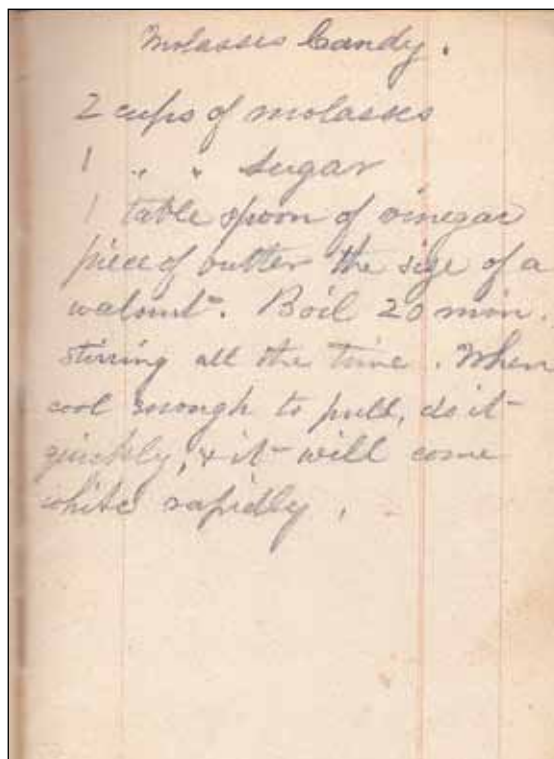 Molasses Candy.
2 cups of molasses
1 " " sugar
1 table spoon of vinegar
piece of butter the size of a
walnut. Boil 20 min.
stirring all the time. When
cool enough to pull, do it
quickly, & it will come
white rapidly.